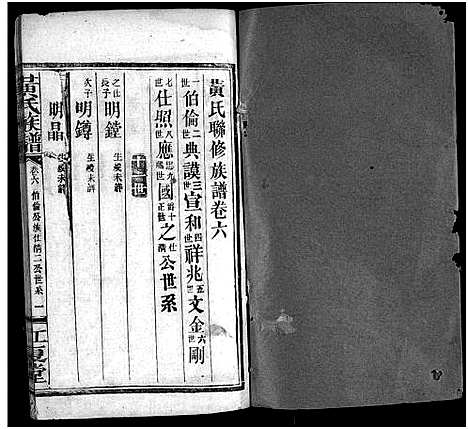 黃氏聯修族譜卷六
一世伯倫二世典謨三世宣和四世祥兆五世文金六世剛
七世仕照八世應九世國十世之公世系
十一世
之仕長子明鏜 生歿未詳
次子明鐏 生歿未詳
明晶 生歿未詳
黃氏族譜 卷六 伯倫公族仕清二公世系 一 江夏堂